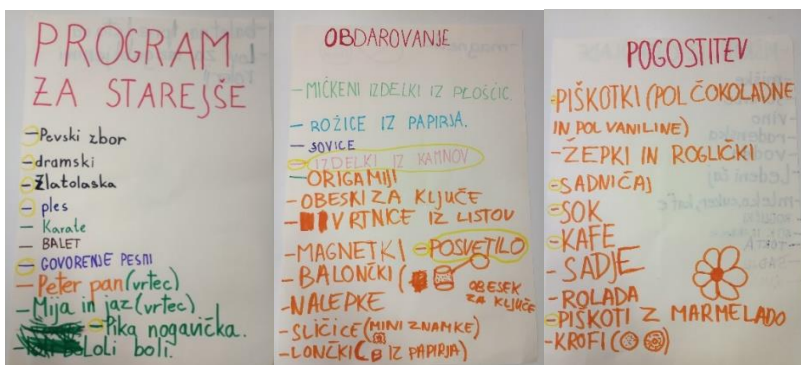 PROGRAM
ZA STAREJŠE
-Pevski zbor
-dramski
-Zlatolaska
- ples
- Karate
- BALET
- GOVORENJE PESMI
- Peter pan (vrtec)
- Mija in jaz (vrtec)
-Pika nogavička.
Loli boli.
OBDAROVANJE
-MIČKENI IZDELKI IZ PLOŠČIC.
- ROŽICE IZ PAPIRJA.
- SOVICE
- IZDELKI IZ KAMNOV
- ORIGAMIJI
- OBESKI ZA KLJUČE
- VRTNICE IZ LISTOV
-MAGNETKI -POSVETILO
-BALONČKI (
OBESEK
ZA KLJUČE
-NALEPKE
-SLIČICE (MINI ZNAMKE)
-LONČKI (IZ PAPIRJA)
POGOSTITEV
-PIŠKOTKI (POL ČOKOLADNE
IN POL VANILINE)
-ŽEPKI IN ROGLIČKI
-SADNIČAJ
-SOK
-KAFE
-SADJE
-ROLADA
-PIŠKOTI Z MARMELADO
-KROFI